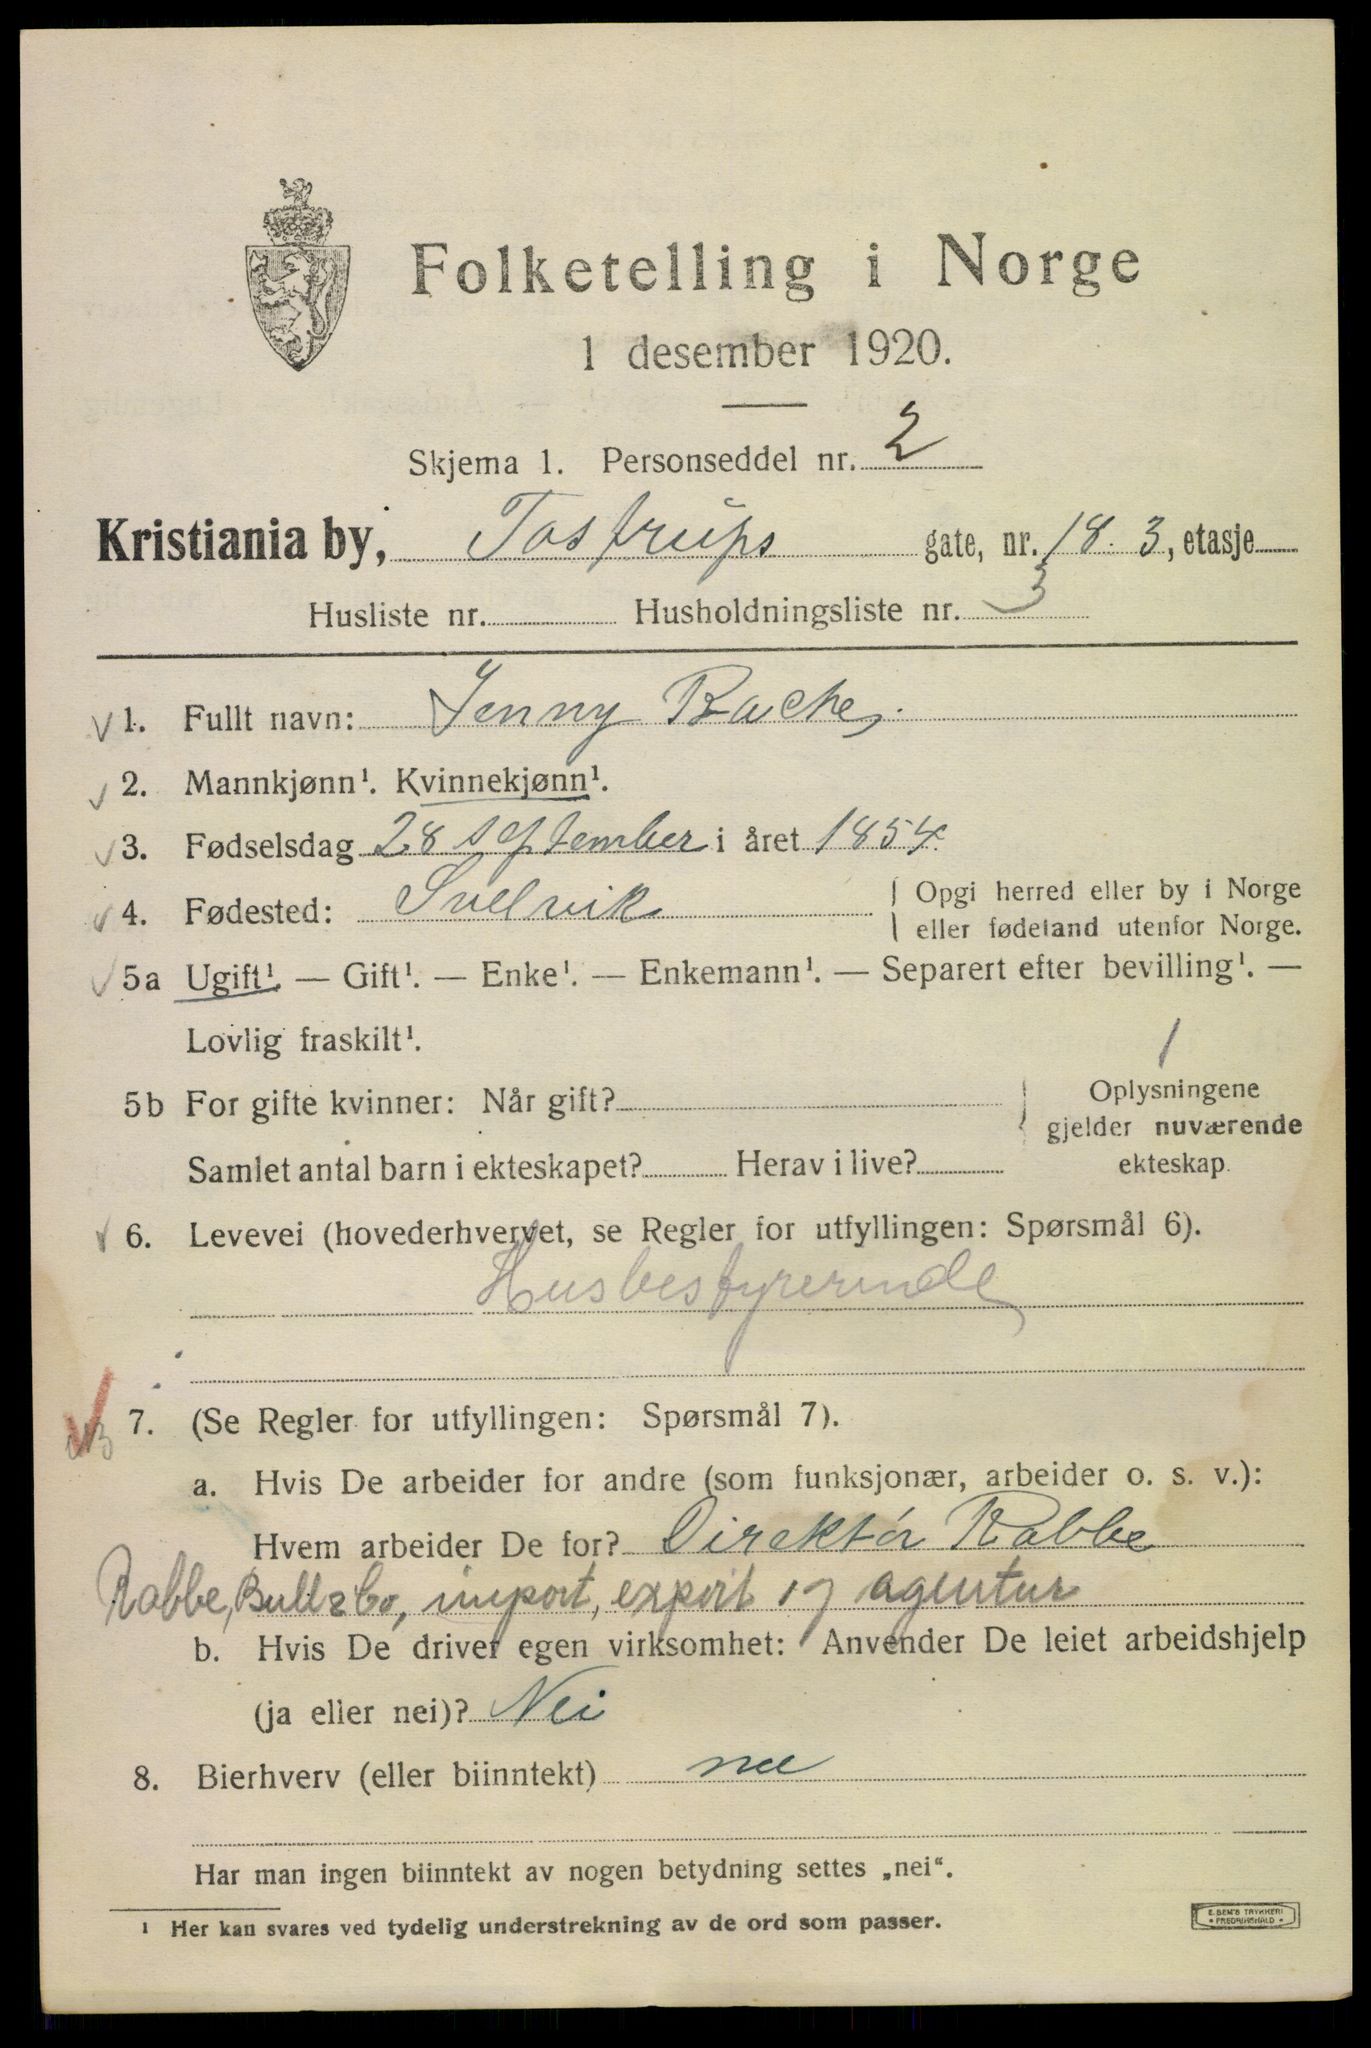 Folketelling i Norge
1 desember 1920.
Skjema 1. Personseddel nr. 2
Kristiania by, Tostrups gate, nr. 18. 3, etasje
Husliste nr. Husholdningsliste nr. 3
1. Fullt navn: Jenny Bache.
2. Mannkjønn¹. Kvinnekjønn¹.
3. Fødselsdag 28 september i året 1854.
4. Fødested: Svelvik Opgi herred eller by i Norge
eller fødeland utenfor Norge.
5a Ugift¹. — Gift¹. — Enke¹. — Enkemann¹. — Separert efter bevilling¹. —
Lovlig fraskilt¹.
1
5b For gifte kvinner: Når gift? Oplysningene
gjelder nuværende
Samlet antal barn i ekteskapet? Herav i live? ekteskap.
6. Levevei (hovederhvervet, se Regler for utfyllingen: Spørsmål 6).
Husbestyrerinde
7. (Se Regler for utfyllingen: Spørsmål 7).
a. Hvis De arbeider for andre (som funksjonær, arbeider o. s. v.):
Hvem arbeider De for? Direktør Rabbe
Rabbe, Bull & Co, import, export og agentur
b. Hvis De driver egen virksomhet: Anvender De leiet arbeidshjelp
(ja eller nei)? Nei
8. Bierhverv (eller biinntekt) nei
Har man ingen biinntekt av nogen betydning settes „nei“.
¹ Her kan svares ved tydelig understrekning av de ord som passer.
E. SEM'S TRYKKERI
FREDRIKSHALD